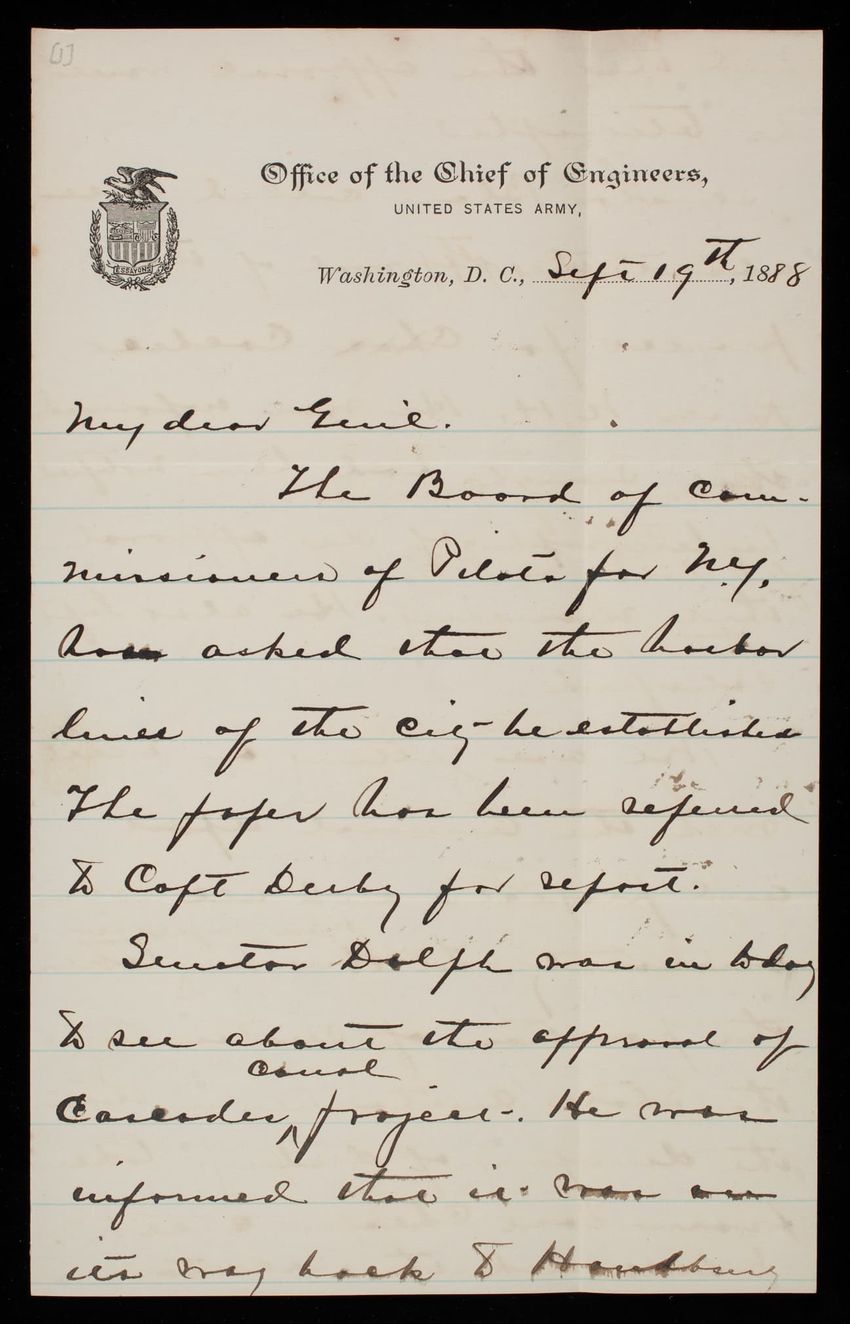 [1]
Office of the Chief of Engineers,
UNITED STATES ARMY,
ESSAYONS
Washington, D. C., Sept 19th, 1888
My dear Genl.
The Board of Com-
missioners of Pilots for N.Y.
has asked that the harbor
lines of the city be established
The paper has been referred
to Capt Derby for report.
Senator Dolph was in today
to see about the approval of
canal
Cascades ^ project. He was
informed that it was on
its way back to Handbury